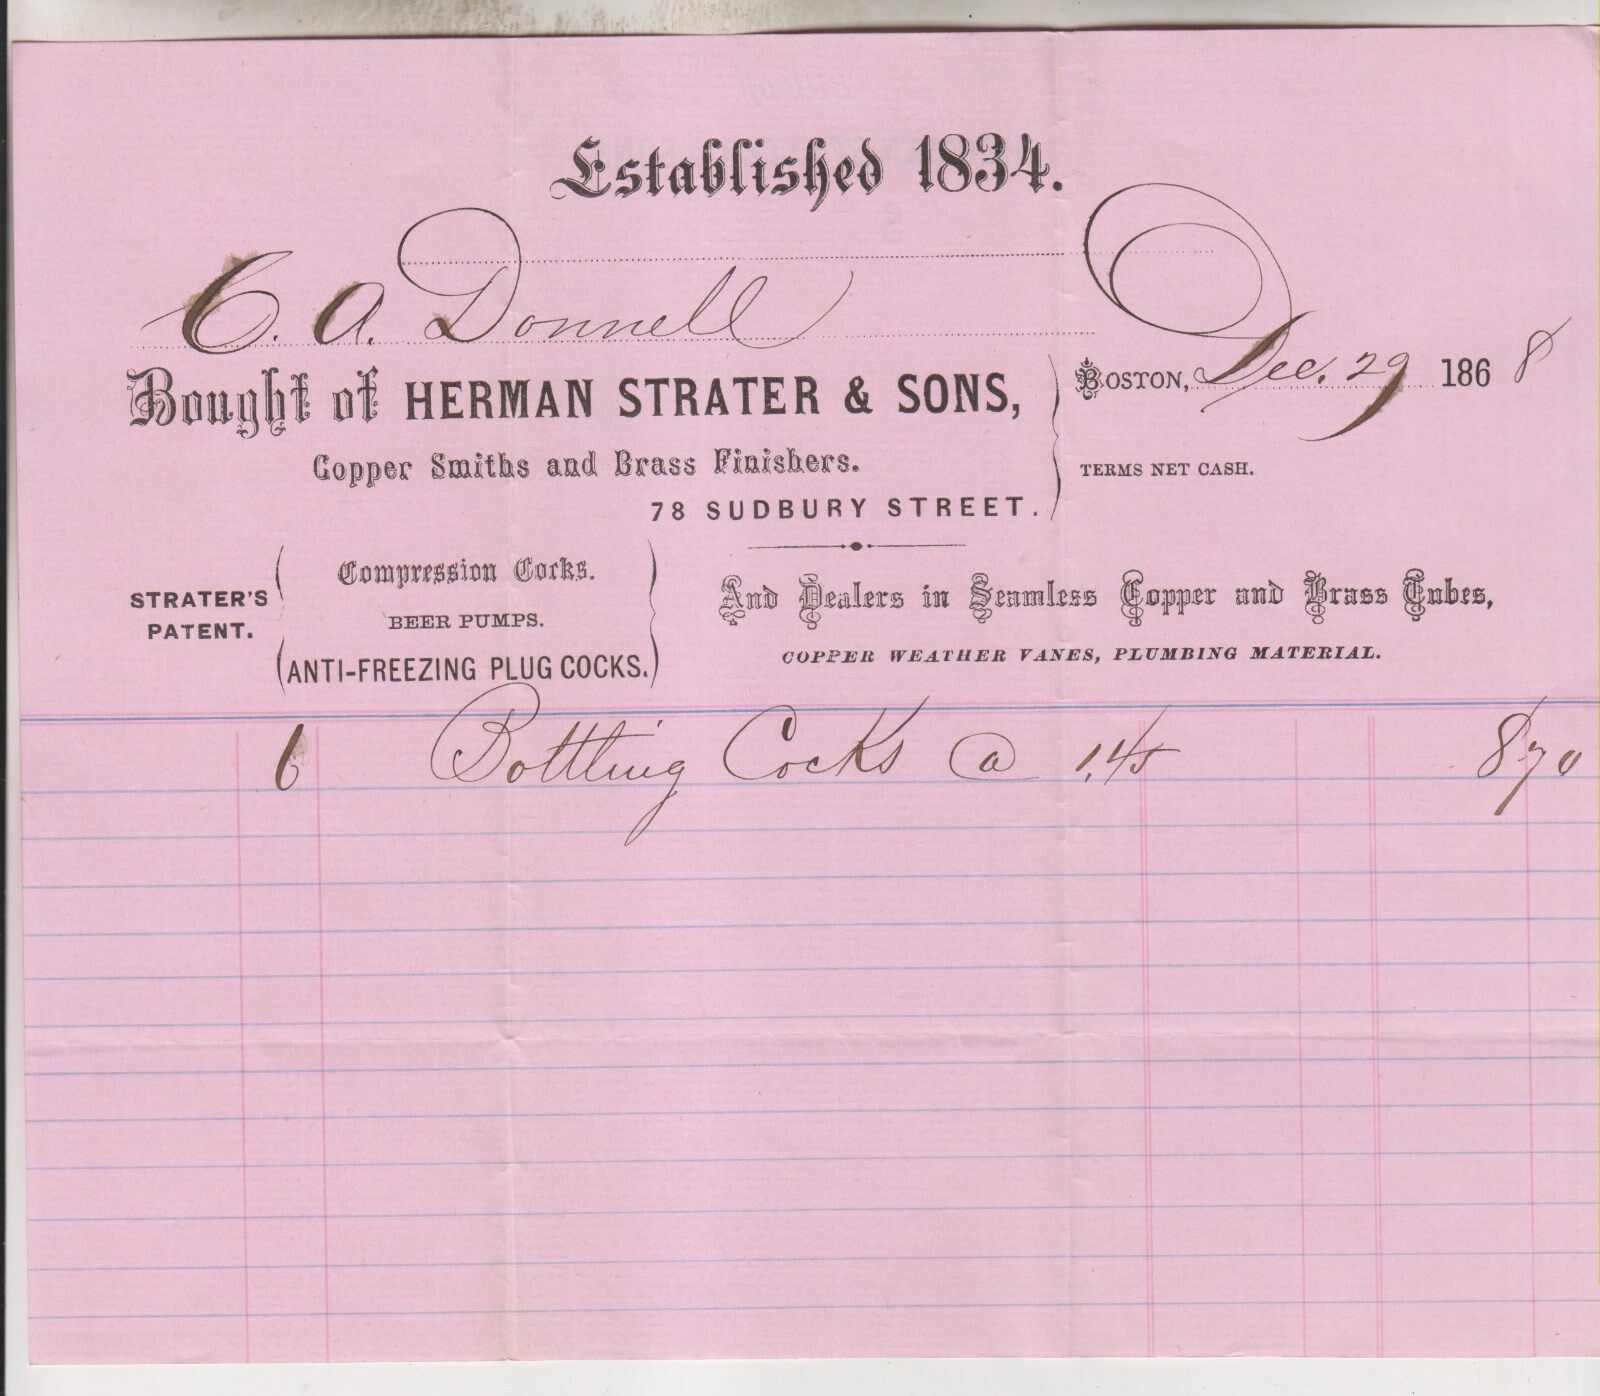 Established 1834.
C. A. Donnell
Bought of HERMAN STRATER & SONS,
Boston, Dec. 29 1868
Copper Smiths and Brass Finishers.
TERMS NET CASH.
78 SUDBURY STREET.
STRATER'S PATENT.
Compression Cocks.
BEER PUMPS.
ANTI-FREEZING PLUG COCKS.
And Dealers in Seamless Copper and Brass Tubes,
COPPER WEATHER VANES, PLUMBING MATERIAL.
6 Bottling Cocks @ 1.45 8 70